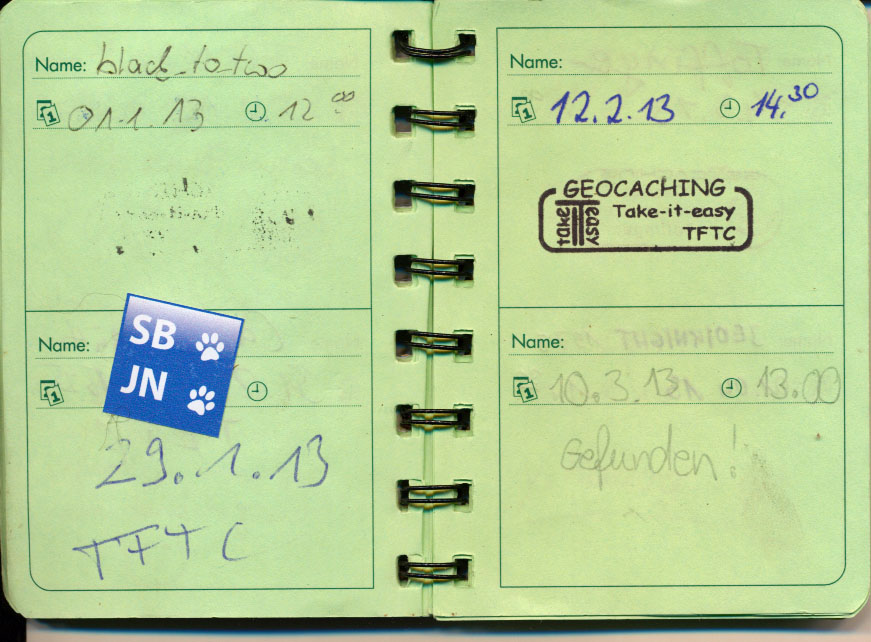 Name: black_to_two
01.1.13 12 00
Name:
SB
JN
29.1.13
TFTC
Name:
12.2.13 14.30
GEOCACHING
take it easy
Take-it-easy
TFTC
Name:
10.3.13 13.00
Gefunden!